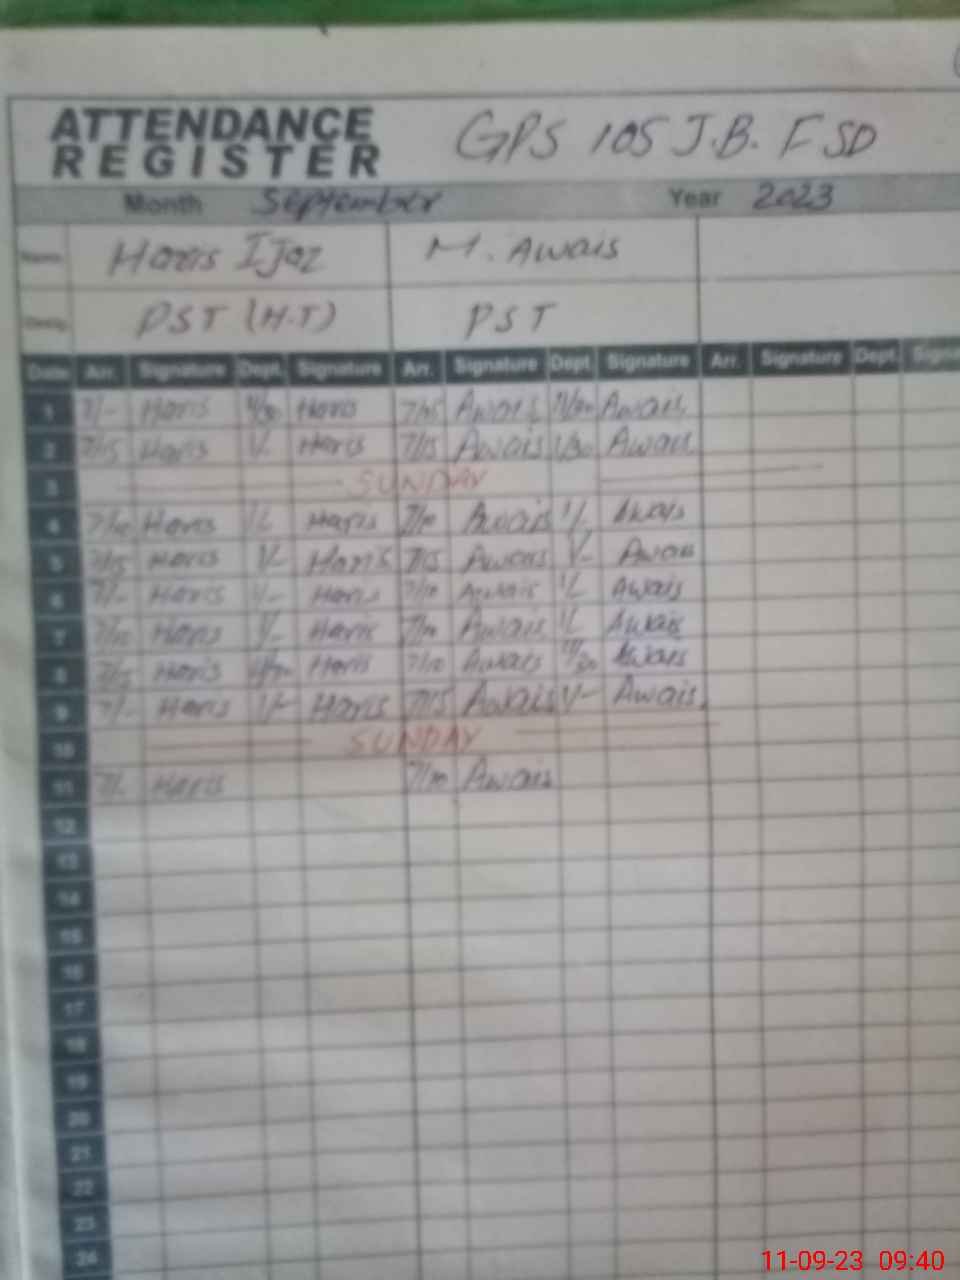 ATTENDANCE REGISTER GPS 105 J.B. FSD
Month September Year 2023
Name Haris Ijaz M. Awais
Desig. PST (H.T) PST
Date Arr. Signature Dept. Signature Arr. Signature Dept. Signature Arr. Signature Dept.
1 7/- Haris 11/30 Haris 7/15 Awais 11/30 Awais
2 7/15 Haris 1/- Haris 7/15 Awais 1/30 Awais
3 SUNDAY
4 7/10 Haris 1/- Haris 7/10 Awais 1/- Awais
5 7/15 Haris 1/- Haris 7/15 Awais 1/- Awais
6 7/- Haris 1/- Haris 7/10 Awais 1/- Awais
7 7/10 Haris 1/- Haris 7/10 Awais 1/- Awais
8 7/15 Haris Haris 7/10 Awais 11/30 Awais
9 7/- Haris 1/- Haris 7/15 Awais 1/- Awais
10 SUNDAY
11 7/- Haris 7/10 Awais
12
13
14
15
16
17
18
19
20
21
22
23
24
11-09-23 09:40